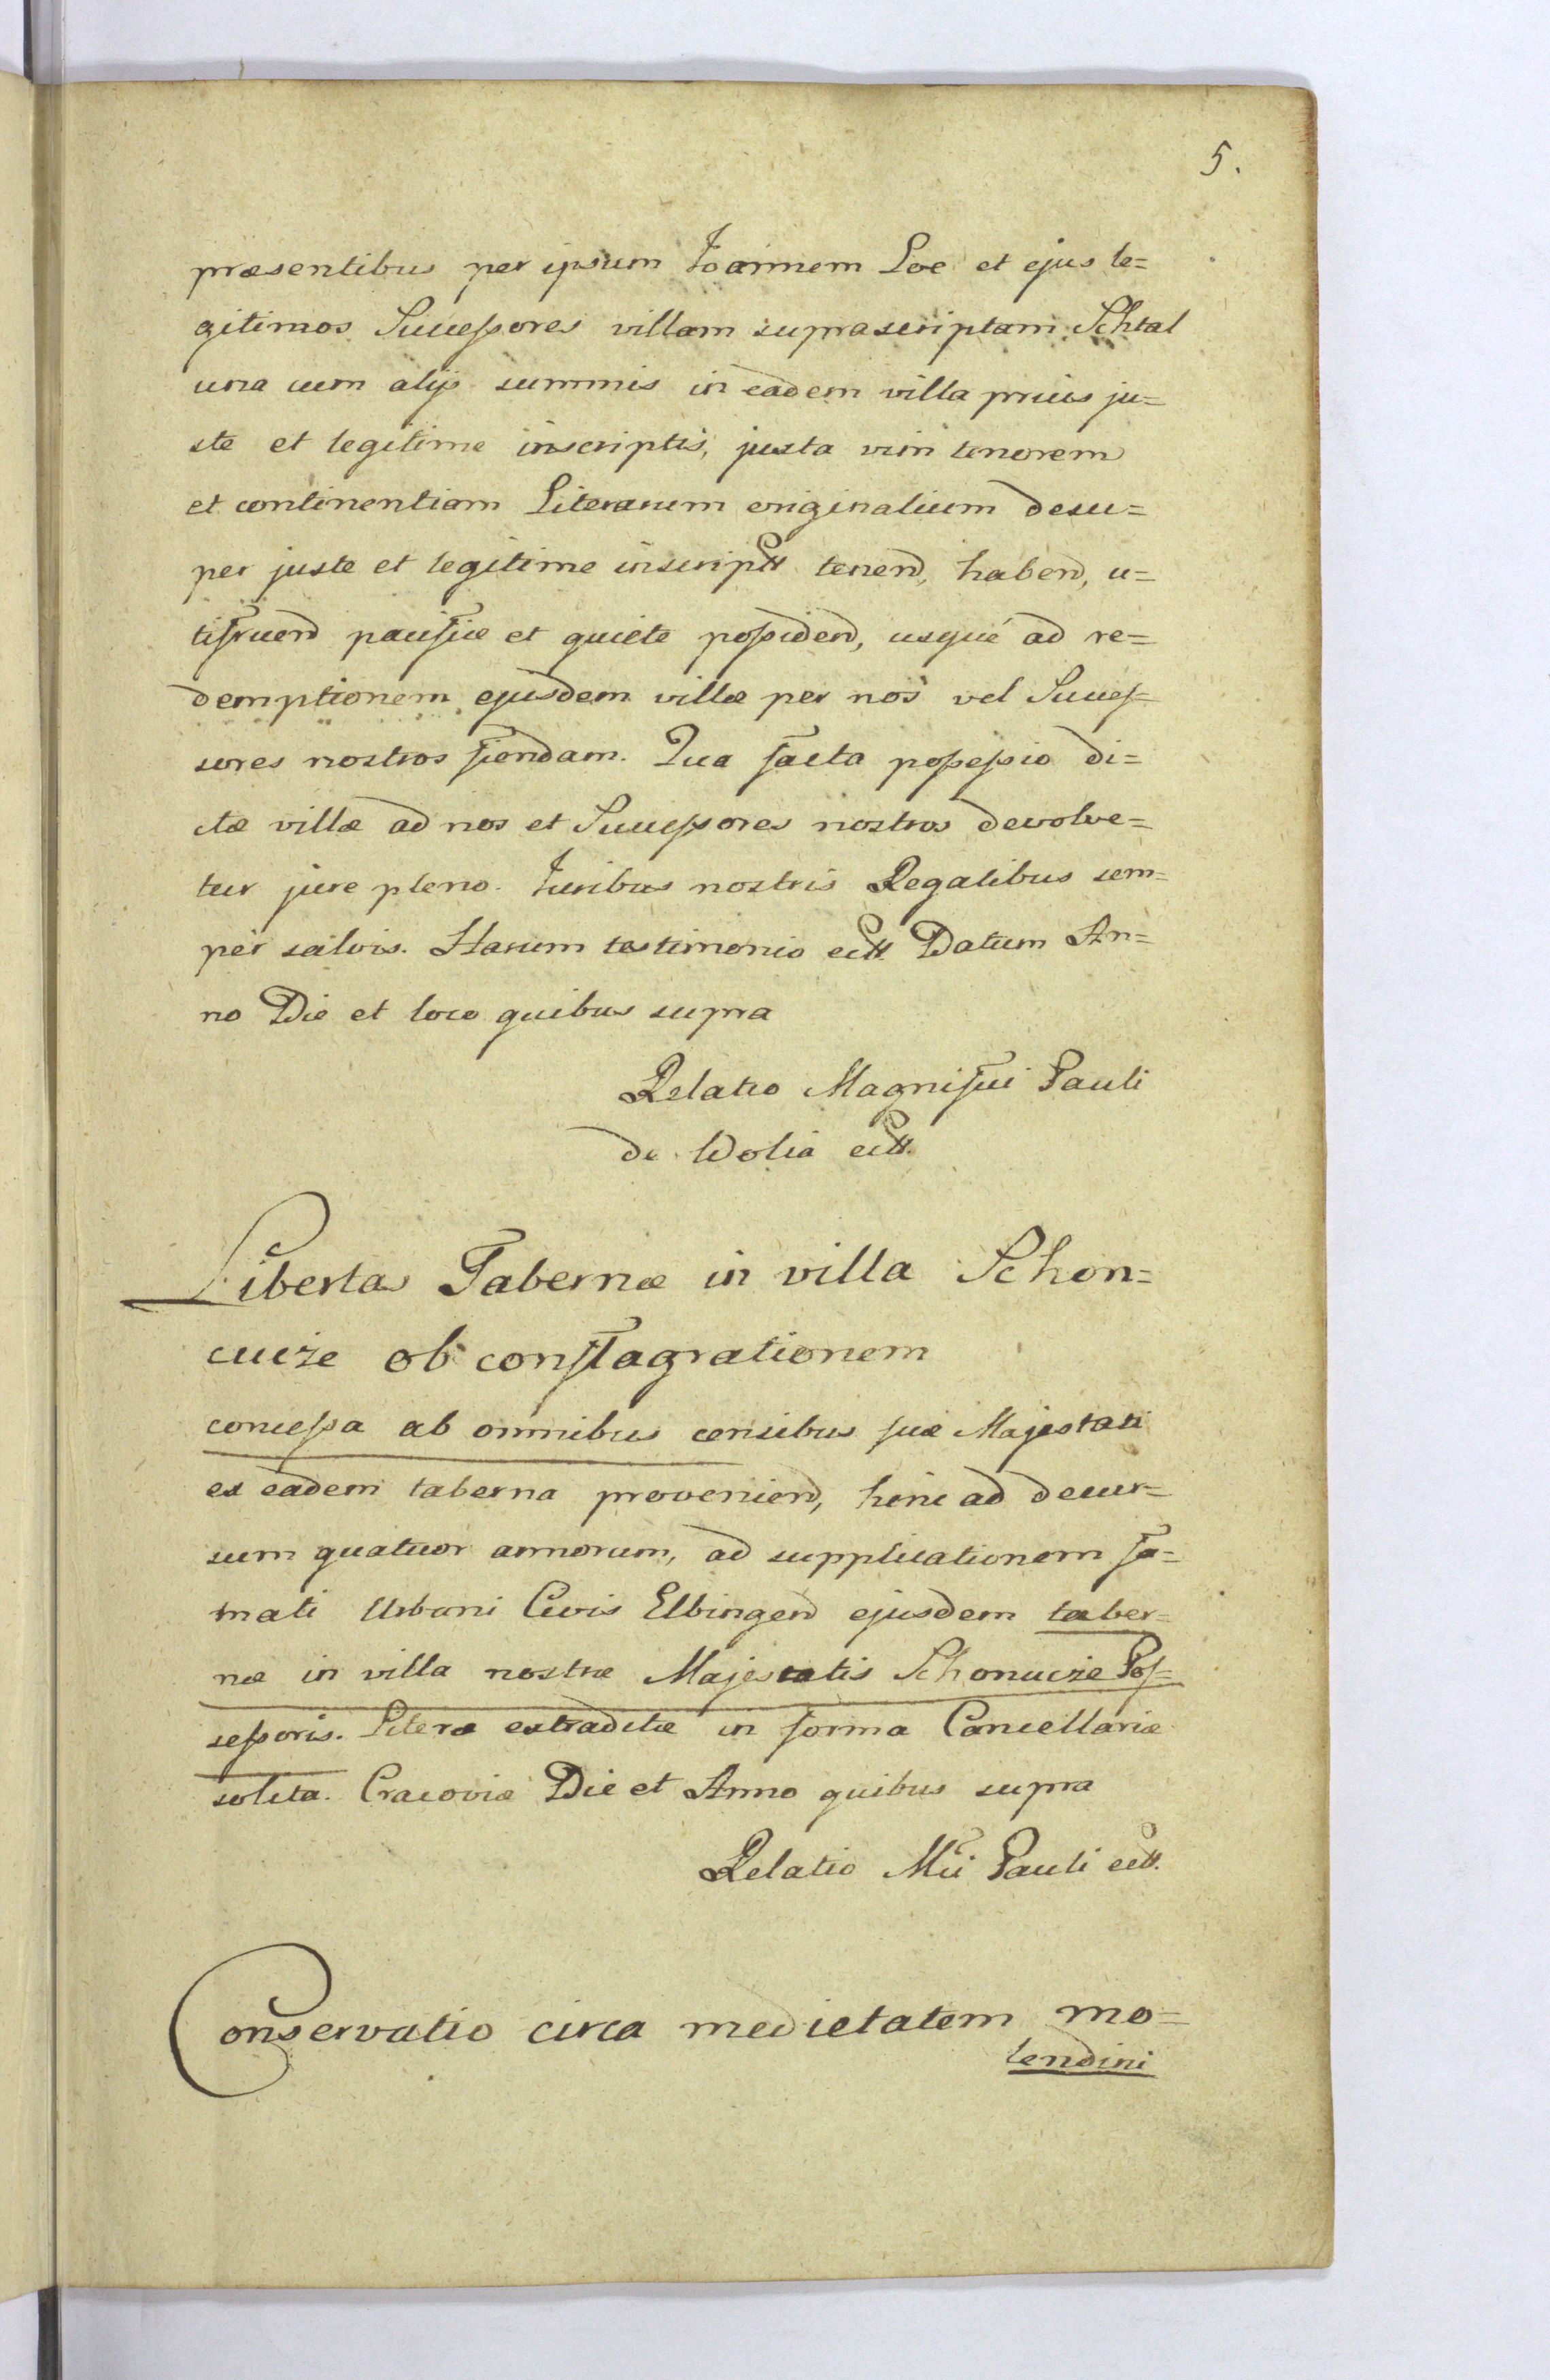 5.
præsentibus per ipsum Joannem Loe et ejus le=
gitimos Successores villam suprascriptam Schtal
una cum alijs summis in eadem villa prius ju=
ste et legitime inscriptis, juxta vim tenorem
et continentiam Literarum originalium desu=
per juste et legitime inscriptt tenend, habend, u=
tifruend pacifice et quiete possidend, usque ad re=
demptionem ejusdem villæ per nos vel Succes=
sores nostros fiendam. Qua facta possessio di=
ctæ villæ ad nos et Successores nostros devolve=
tur jure pleno. Juribus nostris Regalibus sem=
per salvis. Harum testimonio ectt. Datum An=
no Die et loco quibus supra
Relatio Magnifici Pauli
de Wolia ectt.
Libertas Tabernæ in villa Schon=
cuize ob conflagrationem
concessa ab omnibus censibus suæ Majestati
ex eadem taberna proveniend, hinc ad decur=
sum quatuor annorum, ad supplicationem fa=
mati Urbani Civis Elbingend ejusdem taber=
næ in villa nostræ Majestatis Schonucze Pos=
sessoris. Literæ extraditæ in forma Cancellariæ
solita. Cracoviæ Die et Anno quibus supra
Relatio Mci Pauli ectt.
Conservatio circa medietatem mo=
lendini